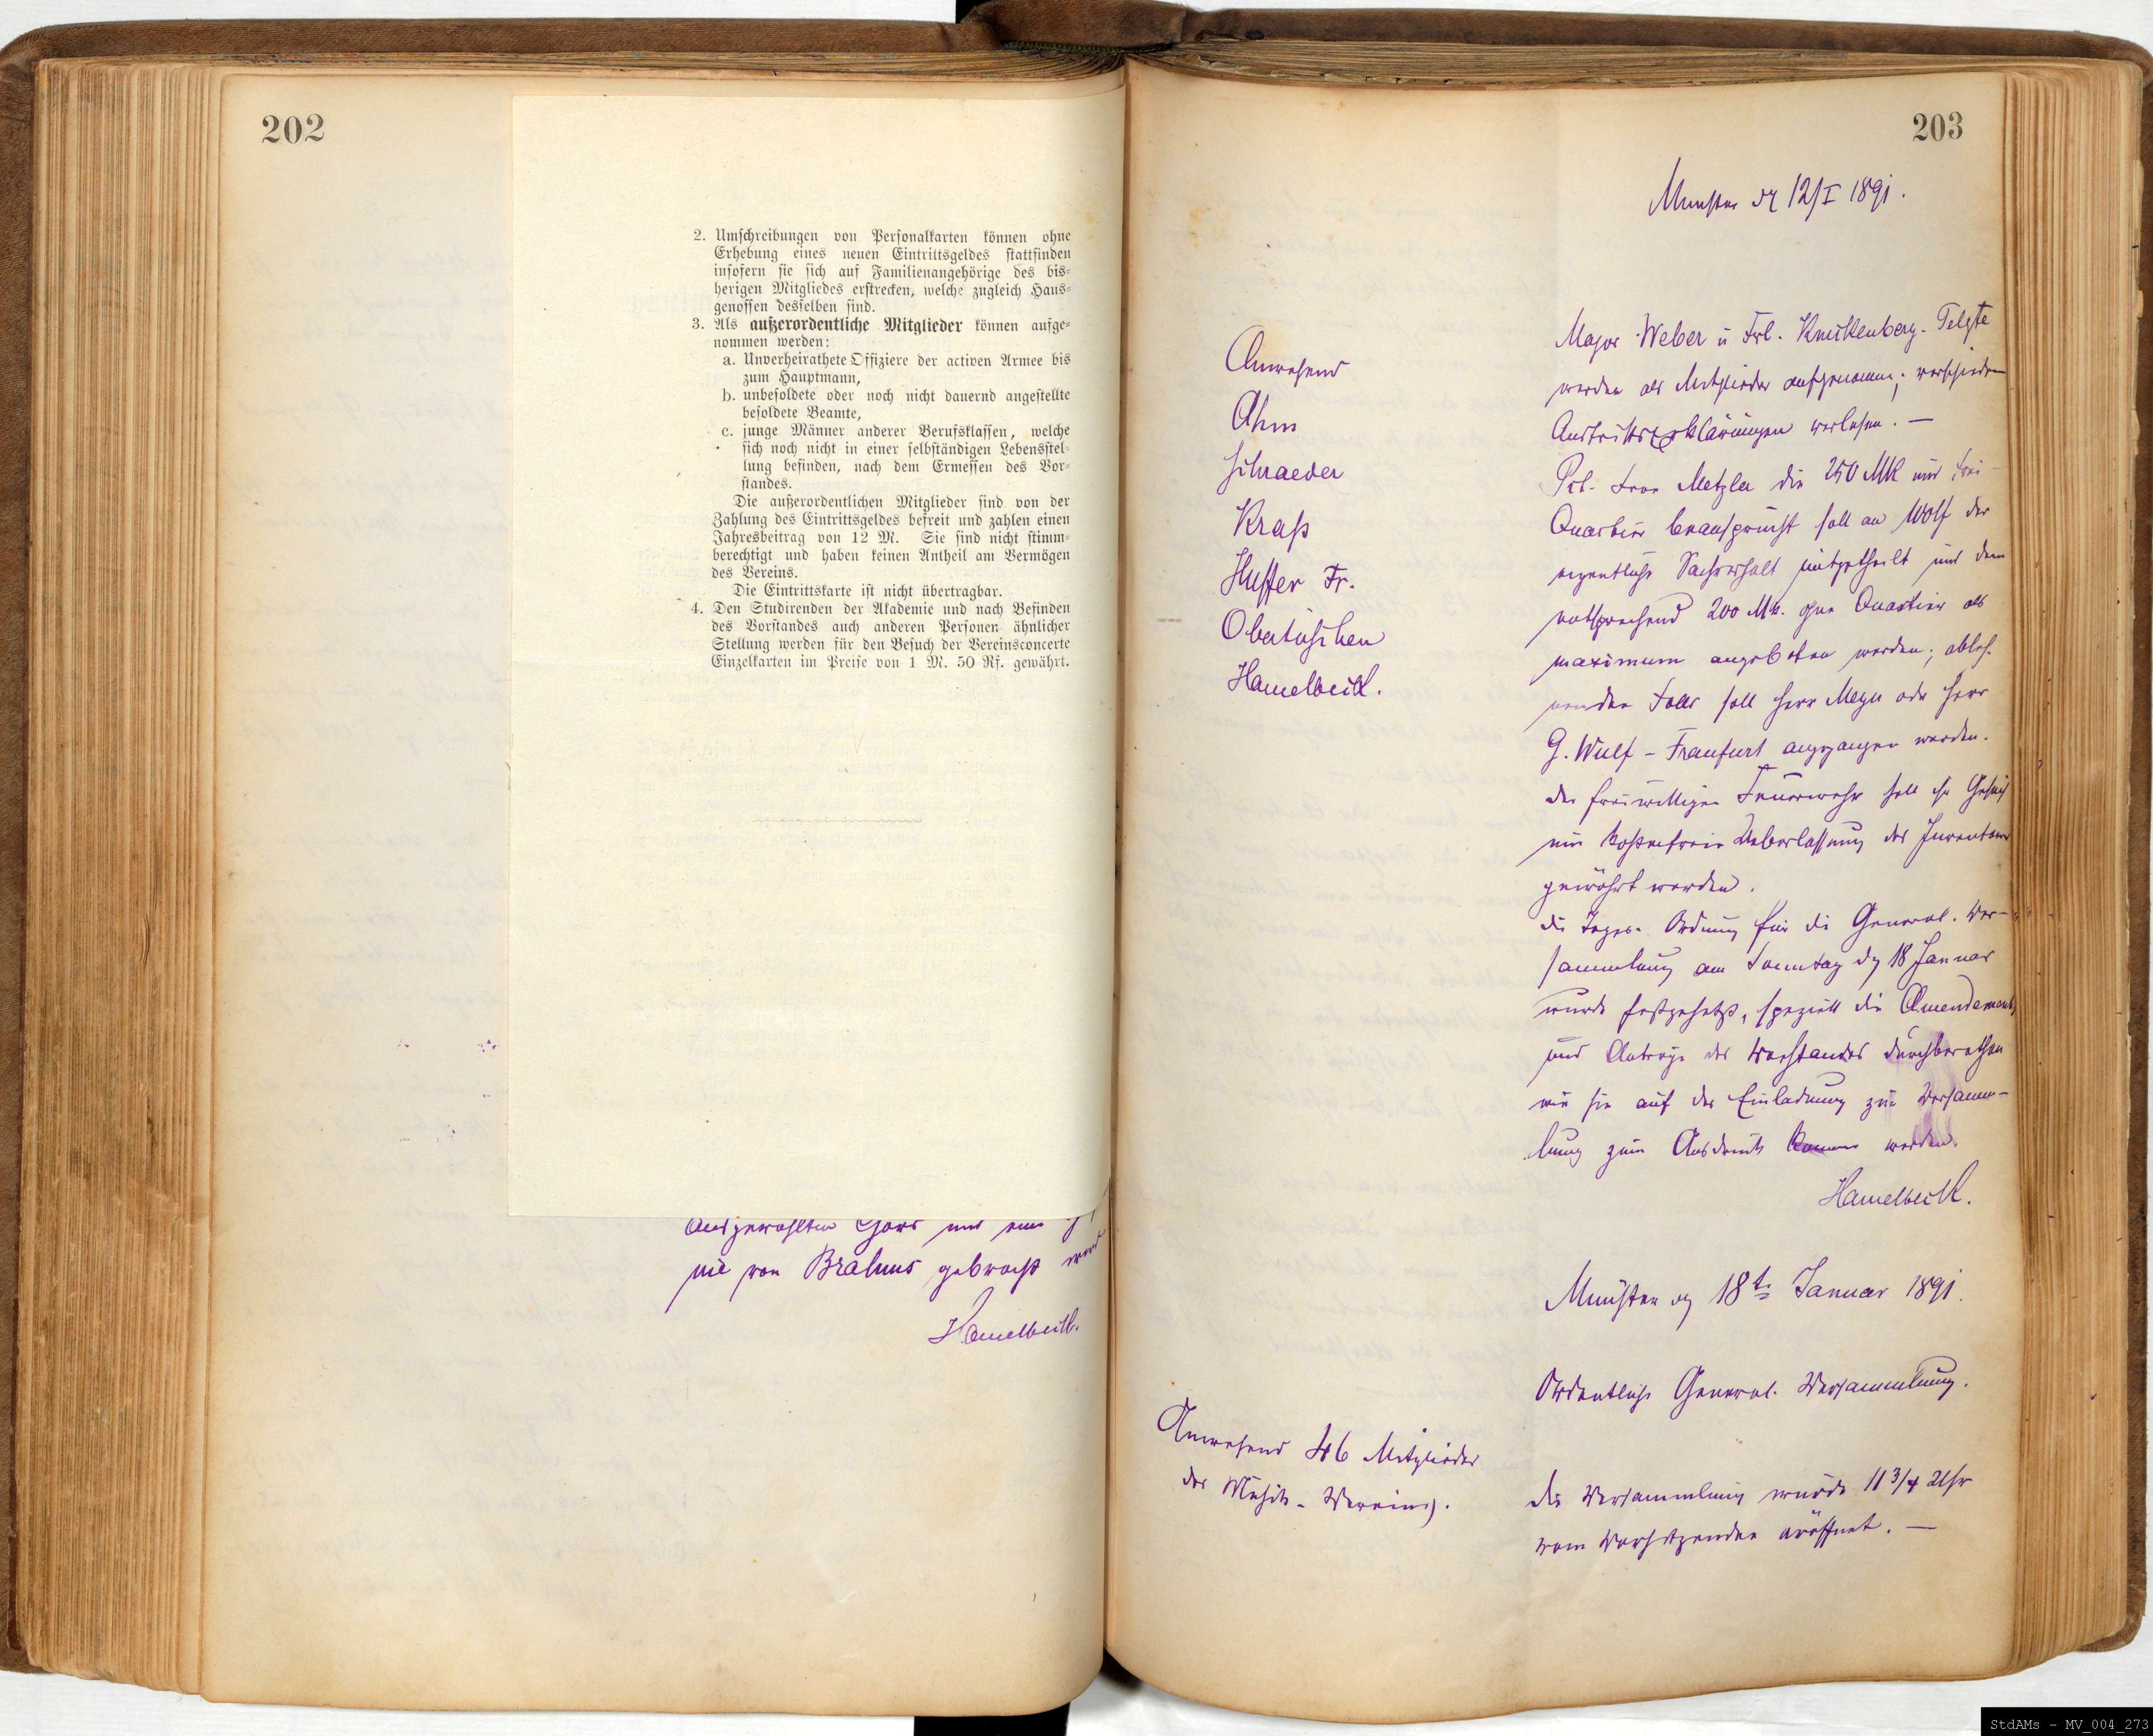 202
2. Umschreibungen von Personalkarten können ohne
Erhebung eines neuen Eintrittsgeldes stattfinden
insofern sie sich auf Familienangehörige des bis-
herigen Mitgliedes erstrecken, welche zugleich Haus-
genossen desselben sind.
3. Als außerordentliche Mitglieder können aufge-
nommen werden:
a. Unverheirathete Offiziere der activen Armee bis
zum Hauptmann,
b. unbesoldete oder noch nicht dauernd angestellte
besoldete Beamte,
c. junge Männer anderer Berufsklassen, welche
sich noch nicht in einer selbständigen Lebensstel-
lung befinden, nach dem Ermessen des Vor-
standes.
Die außerordentlichen Mitglieder sind von der
Zahlung des Eintrittsgeldes befreit und zahlen einen
Jahresbeitrag von 12 M. Sie sind nicht stimm-
berechtigt und haben keinen Antheil am Vermögen
des Vereins.
Die Eintrittskarte ist nicht übertragbar.
4. Den Studirenden der Akademie und nach Befinden
des Vorstandes auch anderen Personen ähnlicher
Stellung werden für den Besuch der Vereinsconcerte
Einzelkarten im Preise von 1 M. 50 Rf. gewährt.
ausgewählten Chors und eine
nie von Brahms gebracht
Hamelbeck.
203
Münster dn 12/I 1891.
Anwesend
Ahm
Schraeder
Kraß
Hüffer Fr.
Obertüschen
Hamelbeck.
Major Weber u Frl. Knickenberg-Telgte
werden als Mitglieder aufgenommen; verschiedene
Austrittserklärungen verlesen. —
Frau Metzler die 250 Mk und frei
Quartier beansprucht soll an Wolf der
eigentliche Sachverhalt mitgetheilt und dem
entsprechend 200 Mk. ohne Quartier als
maximum angeboten werden; ableh-
nenden Falls soll Herr Meyn oder Herr
G. Wulf - Franfurt angegangen werden.
Der freiwilligen Feuerwehr soll ihr Gesuch
um kostenfreie Ueberlassung des Inventars
gewährt werden.
Die Tages-Ordnung für die General-Ver-
sammlung am Sonntag dn 18 Januar
wurde festgesetzt, speziell die Amendements
und Anträge des Vorstandes durchberathen
wie sie auf der Einladung zur Versamm-
lung zum Ausdruck kommen werden.
Hamelbeck.
Münster dn 18te Januar 1891.
Ordentliche General-Versammlung.
Anwesend 46 Mitglieder
des Musik-Vereins.
Die Versammlung wurde 11 3/4 Uhr
vom Vorsitzenden eröffnet. —
StdAMs - MV_004_273